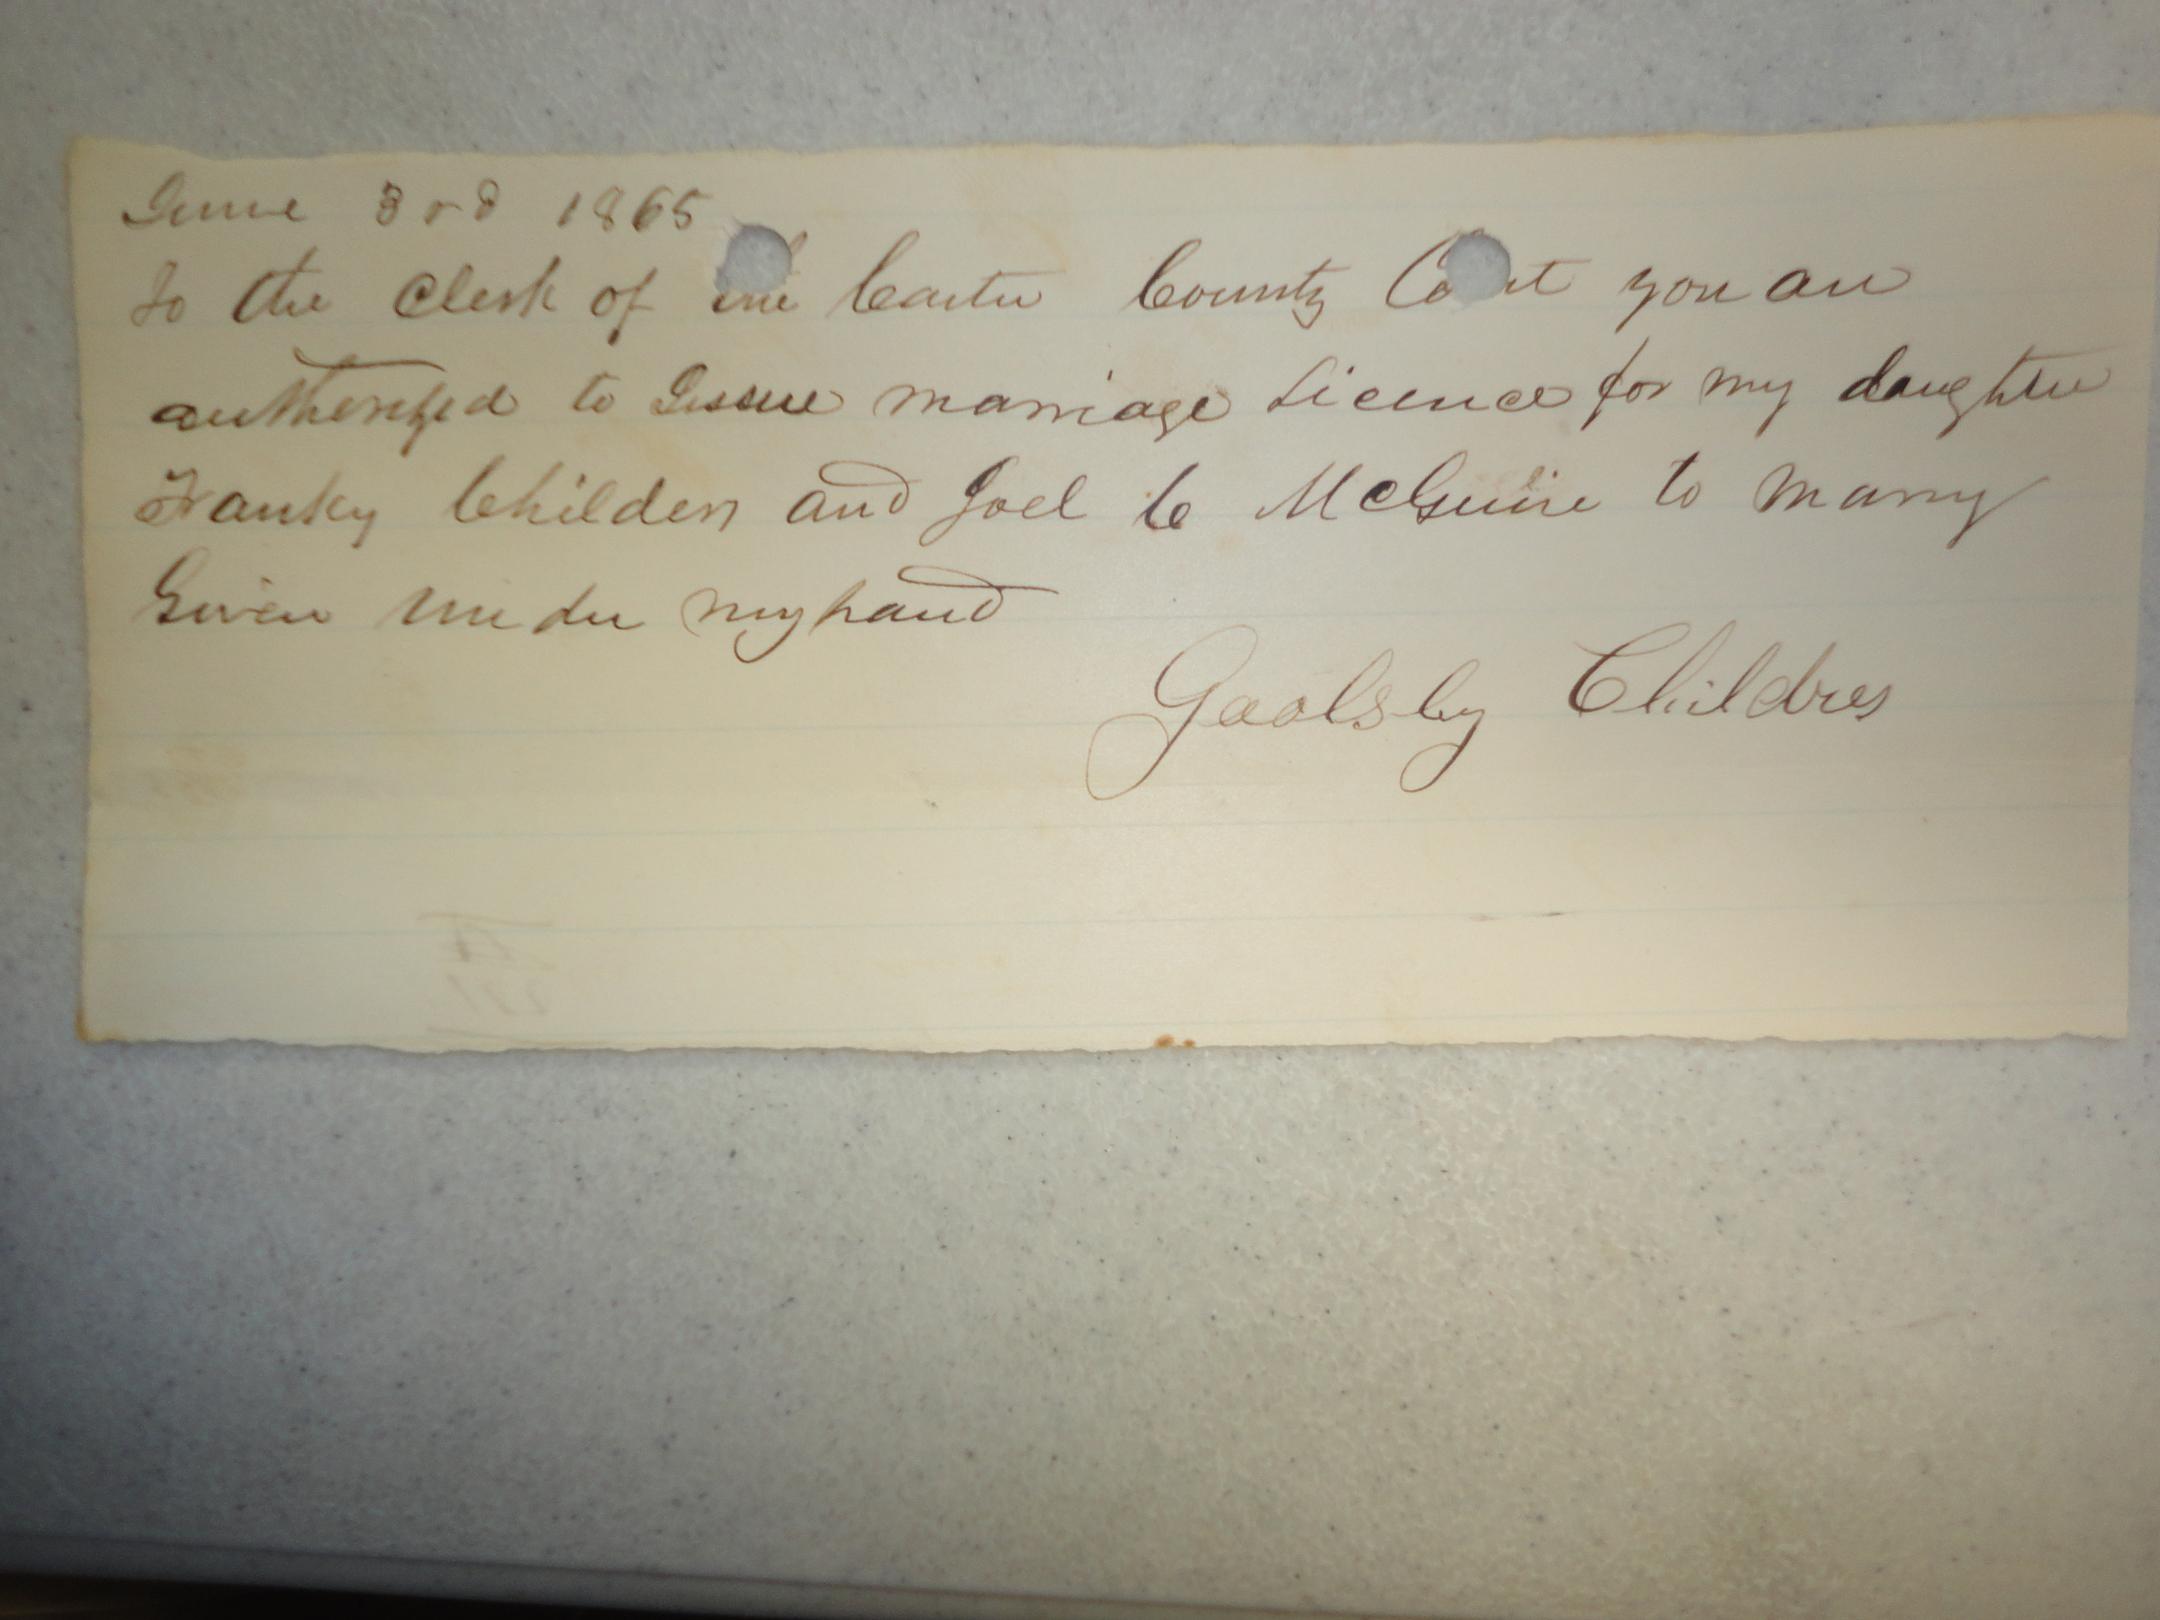 June 3rd 1865
To the Clerk of the Carter County Co t you are
autherized to Issue marriage Licence for my daughter
Franky Childers and Joel C McGuire to marry
Given under my hand
Goolsby Childres